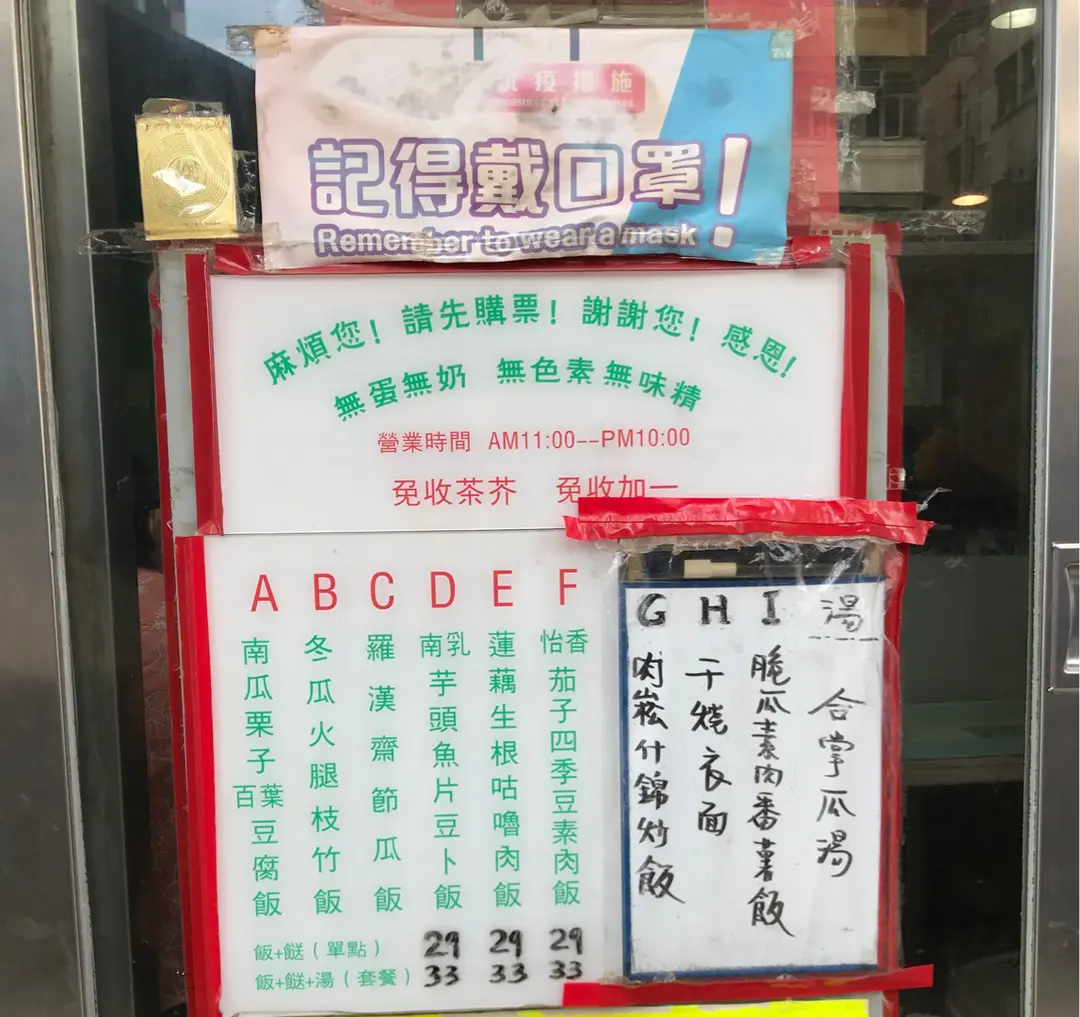 抗疫措施
記得戴口罩!
Remember to wear a mask
麻煩您! 請先購票! 謝謝您! 感恩!
無蛋無奶 無色素無味精
營業時間 AM11:00--PM10:00
免收茶芥 免收加一
A 南瓜栗子百葉豆腐飯
B 冬瓜火腿枝竹飯
C 羅漢齋節瓜飯
D 南乳芋頭魚片豆卜飯
E 蓮藕生根咕嚕肉飯
F 怡香茄子四季豆素肉飯
飯+餸(單點) 29 29 29
飯+餸+湯(套餐) 33 33 33
G 肉崧什錦炒飯
H 干燒衣面
I 脆瓜素肉番薯飯
湯 合掌瓜湯